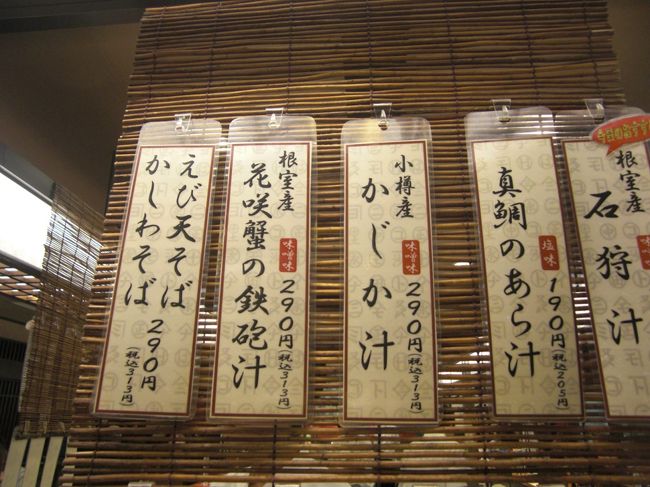 根室産
石狩汁
味噌味
真鯛のあら汁
塩味
190円
(税込205円)
小樽産
かじか汁
味噌味
290円
(税込313円)
根室産
花咲蟹の鉄砲汁
味噌味
290円
(税込313円)
えび天そば
かしわそば
290円
(税込313円)